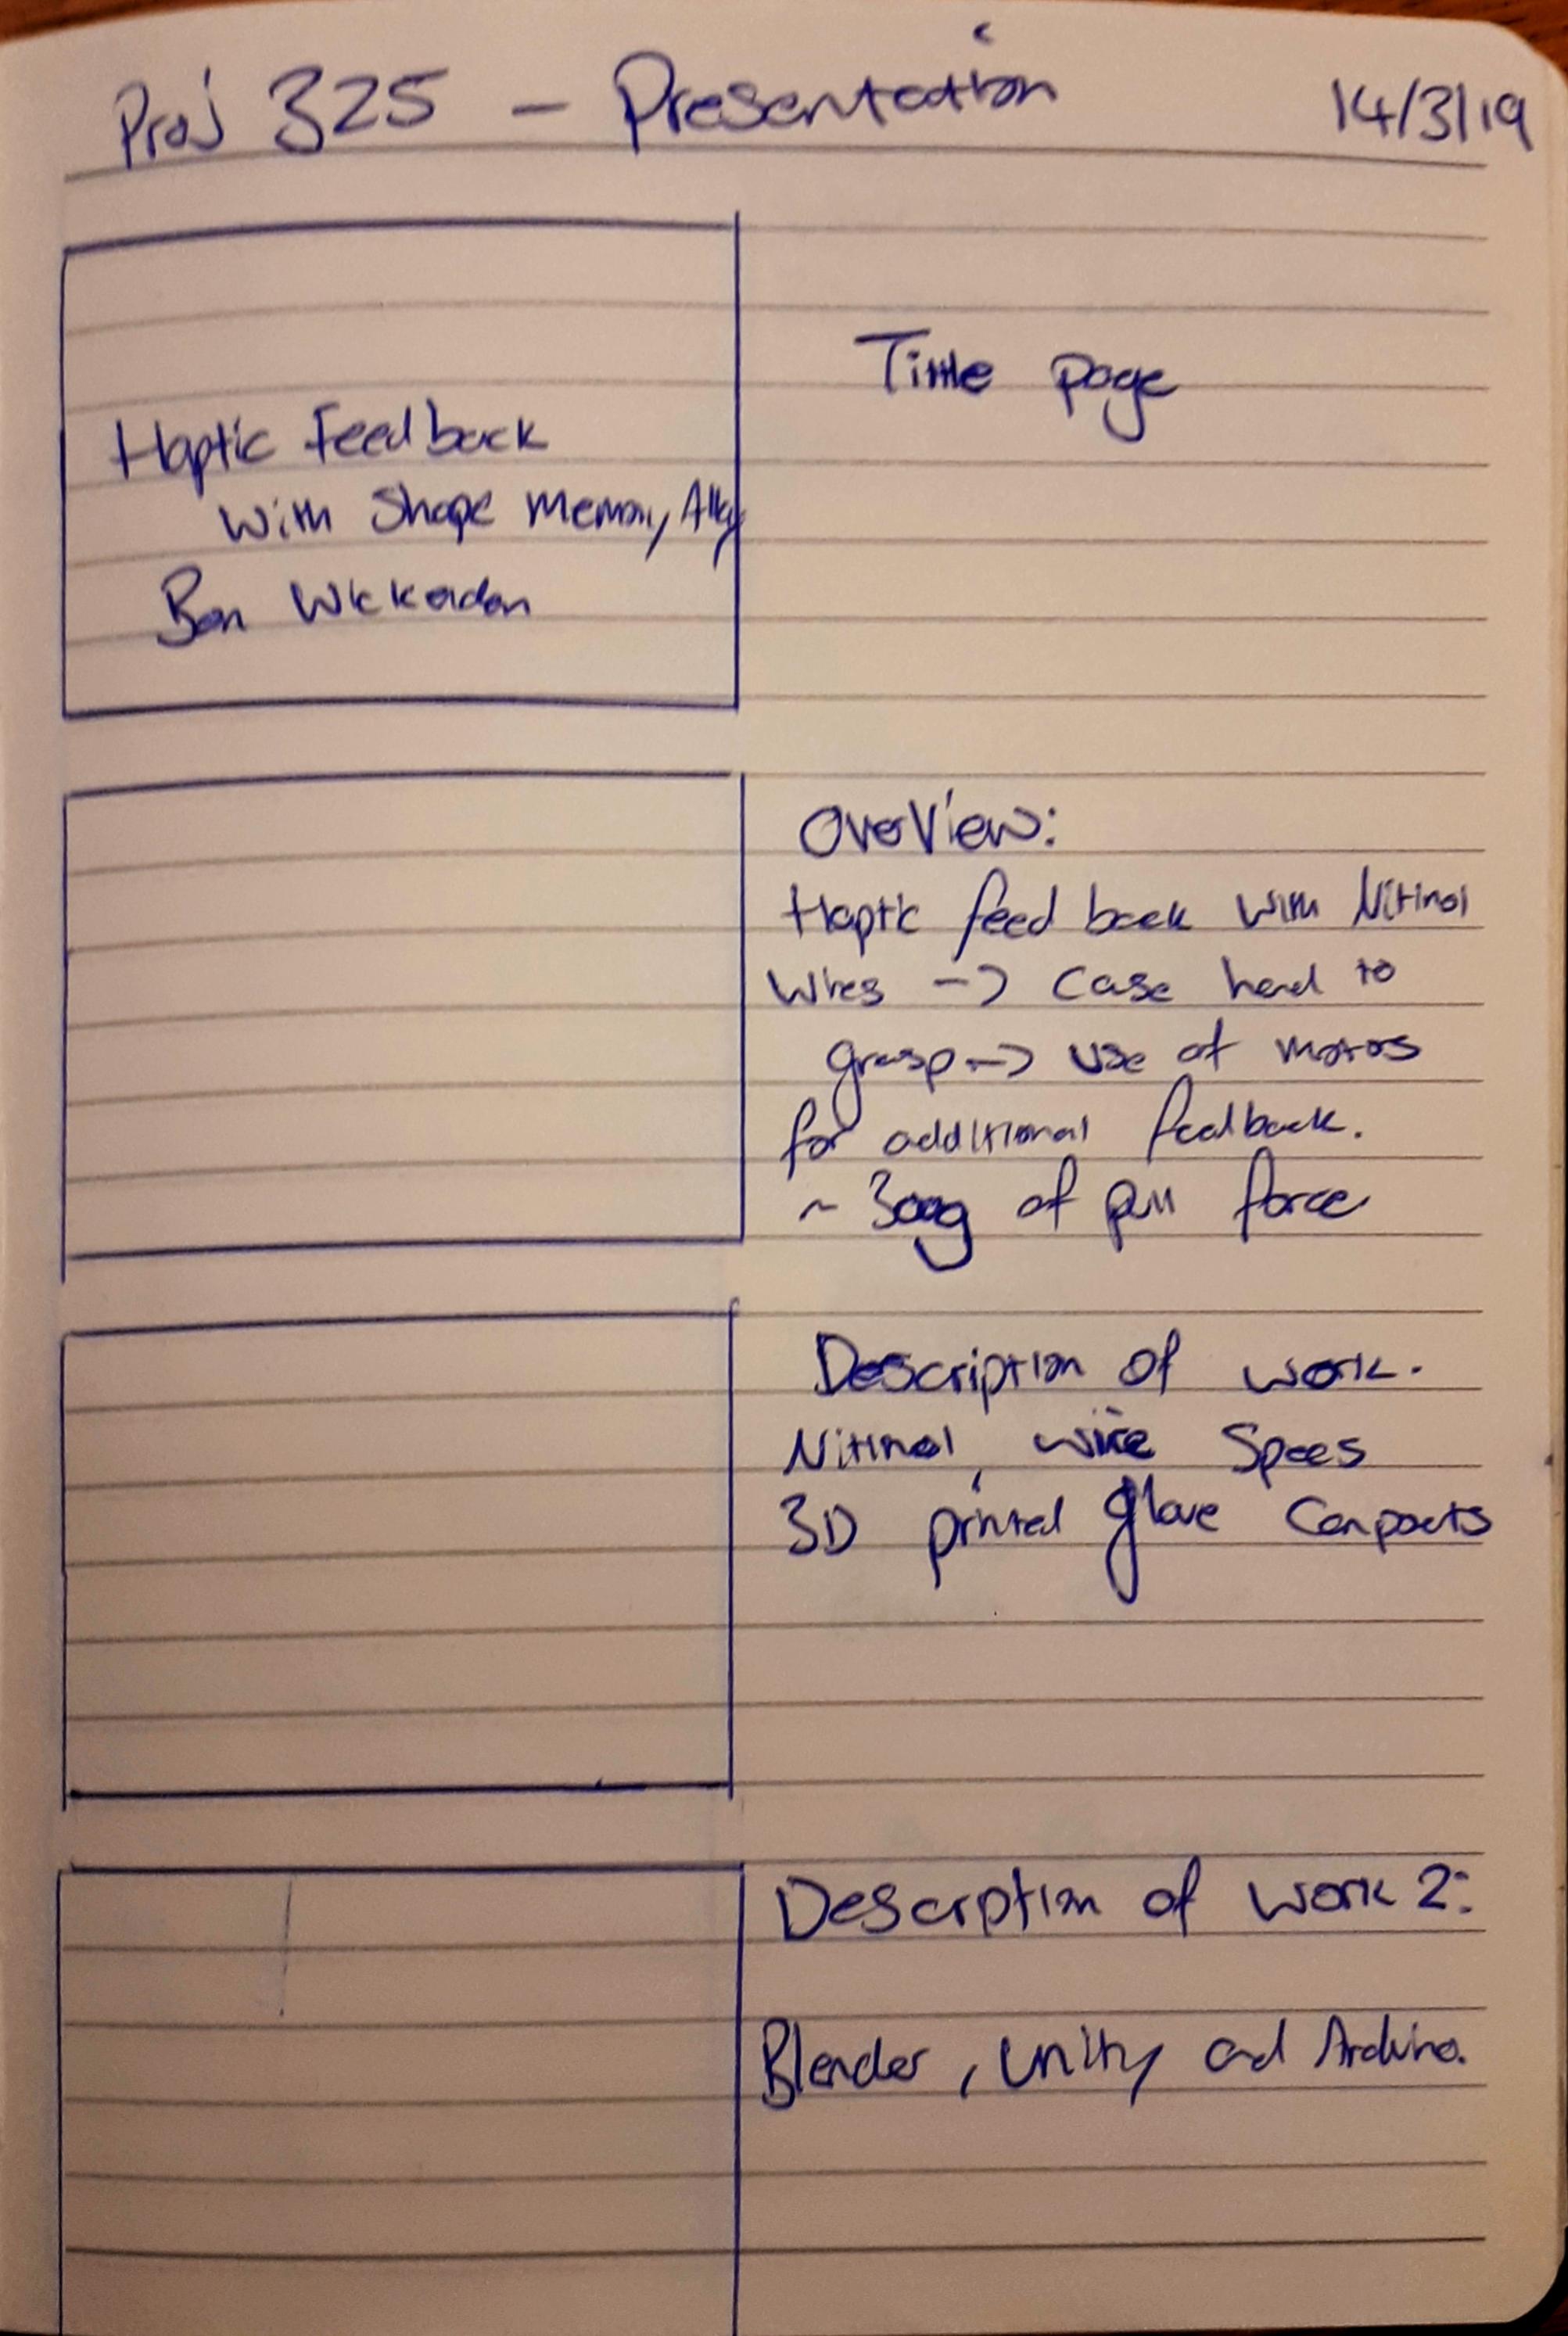 Proj 325 - Presentation
14/3/19
Haptic Feedback
With Shape Memory Alloy
Ben
Tittle page
Overview:
Haptic feed back with Nitinol
Wires -> Case hand to
grasp -> use of motors
for additional feedback.
~ 300g of pull force
Description of work.
Nitinol, wire Specs
3D printed glove
Description of work 2:
Blender, Unity and Arduino.